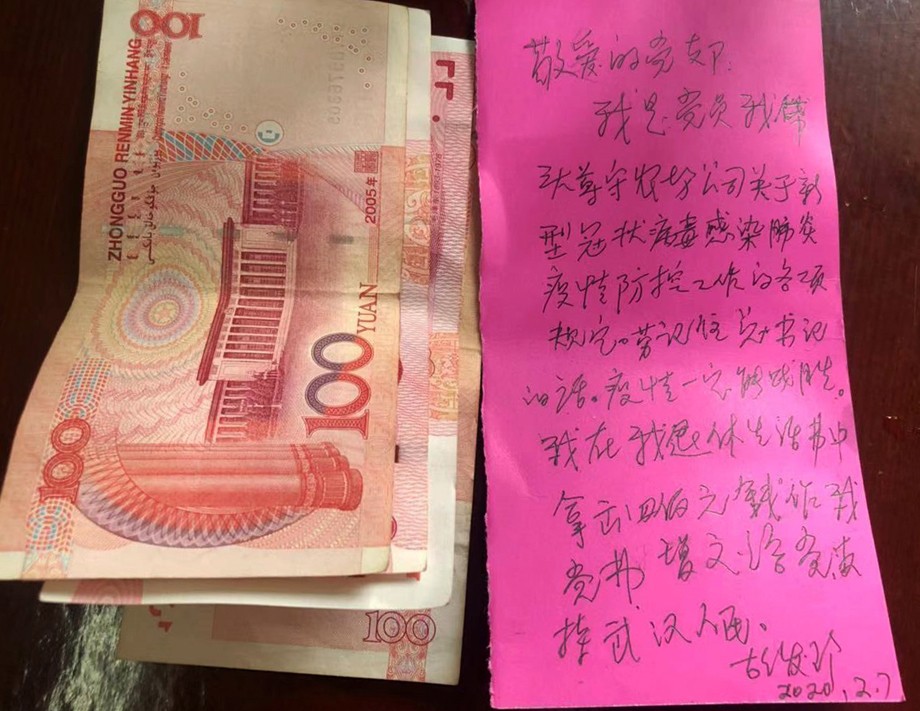 100
ZHONGGUO RENMIN YINHANG
2005年
100
YUAN
100
100
敬爱的党支部:
我是党员我保
大尊守农场公司关于新
型冠状病毒感染肺炎
疫情防控工作的各项
规定。劳记住总书记
的话。疫情一定能战胜。
我在我退休生活书中
拿出四佰元钱作我
党书增交给
武汉人民。
2020.2.7